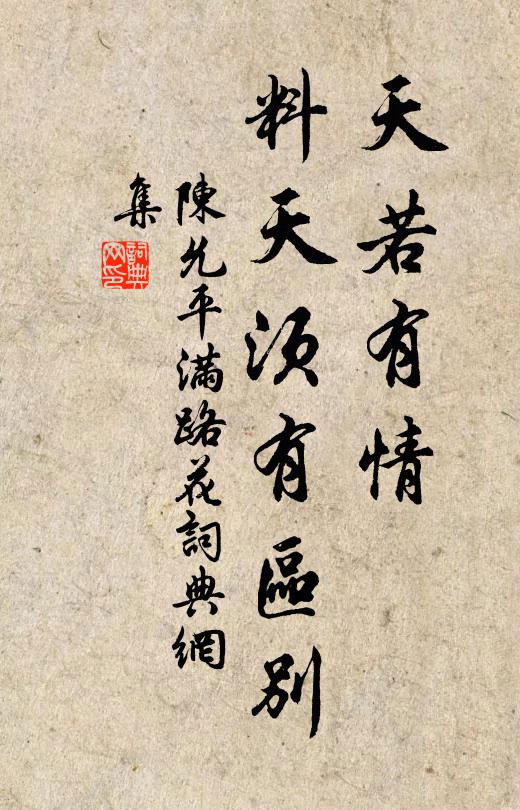 天若有情
料天須有區別
陳允平滿路花詞典網
集
詞典网印